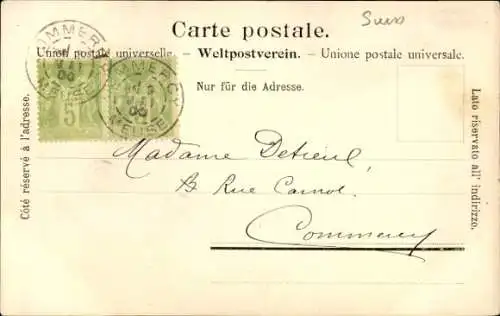 Suiss
Carte postale.
Union postale universelle. - Weltpostverein. - Unione postale universale.
Nur für die Adresse.
Côté réservé à l'adresse.
Lato riservato all' indirizzo.
COMMERCY
MEUSE
COMMERCY
00
MEUSE
5
Madame Detreul,
13 Rue Carnot.
Commercy